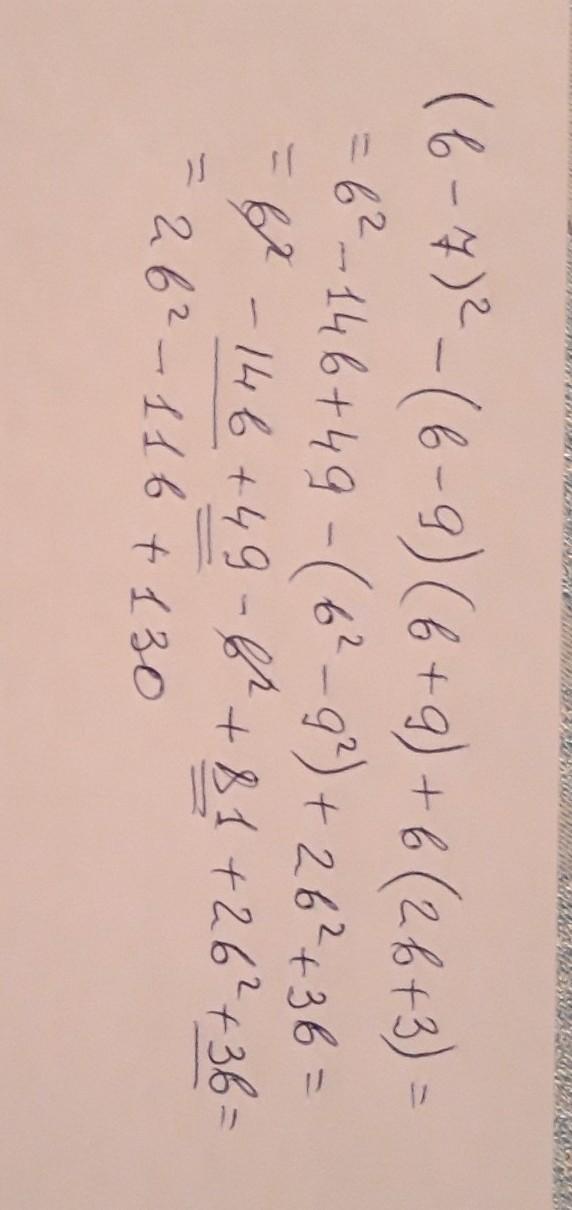 (b - 7)² - (b - 9)(b + 9) + b(2b + 3) =
= b² - 14b + 49 - (b² - 9²) + 2b² + 3b =
= b² - 14b + 49 - b² + 81 + 2b² + 3b =
= 2b² - 11b + 130